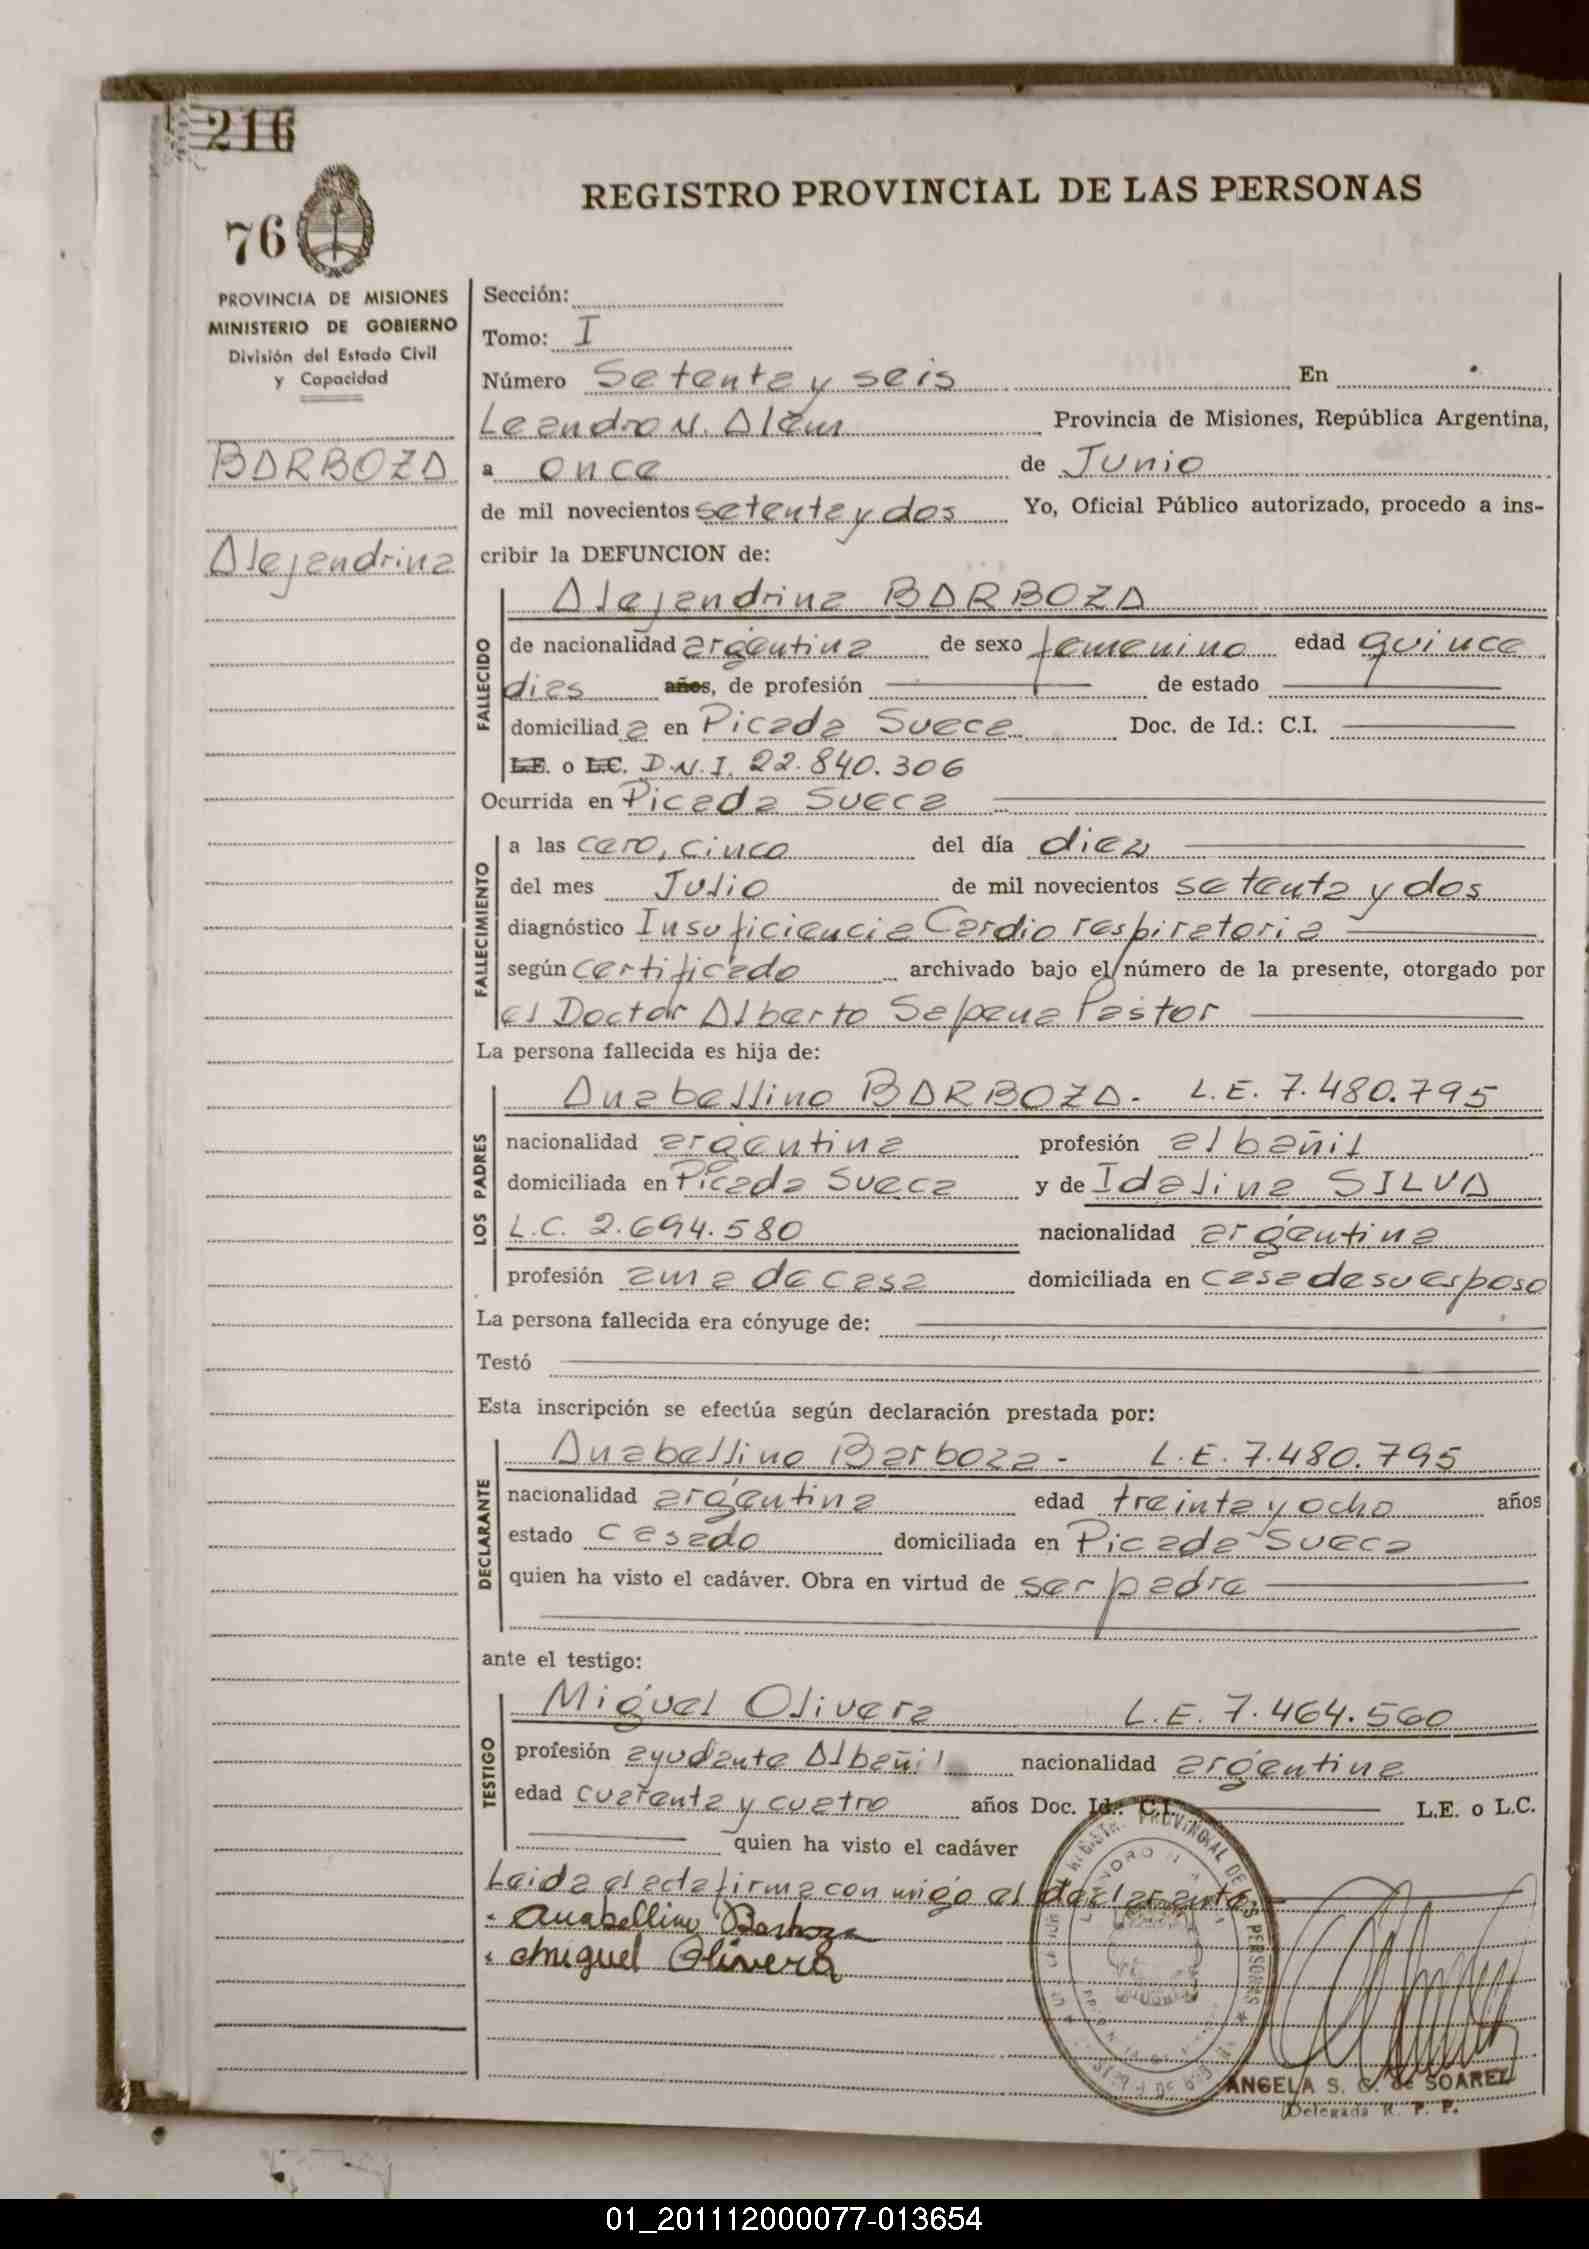 216
76
REGISTRO PROVINCIAL DE LAS PERSONAS
PROVINCIA DE MISIONES
MINISTERIO DE GOBIERNO
División del Estado Civil
y Capacidad
BARBOZA
Alejandrina
Sección:
Tomo: I
Número Setenta y seis En
Leandro N. Alem Provincia de Misiones, República Argentina,
a once de Junio
de mil novecientos setenta y dos Yo, Oficial Público autorizado, procedo a ins-
cribir la DEFUNCION de:
FALLECIDO
Alejandrina BARBOZA
de nacionalidad argentina de sexo femenino edad quince
dias años, de profesión de estado
domiciliada en Picada Sueca Doc. de Id.: C.I.
L.E. o L.C. D.N.I. 22.840.306
Ocurrida en Picada Sueca
FALLECIMIENTO
a las cero, cinco del día diez
del mes Julio de mil novecientos setenta y dos
diagnóstico Insuficiencia Cardio respiratoria
según certificado archivado bajo el número de la presente, otorgado por
el Doctor Alberto Sapena Pastor
La persona fallecida es hija de:
LOS PADRES
Anabellino BARBOZA. L.E. 7.480.795
nacionalidad argentina profesión albañil
domiciliada en Picada Sueca y de Idalina SILVA
L.C. 2.694.580 nacionalidad argentina
profesión ama de casa domiciliada en casa de su esposo
La persona fallecida era cónyuge de:
Testó
Esta inscripción se efectúa según declaración prestada por:
DECLARANTE
Anabellino Barboza - L.E. 7.480.795
nacionalidad argentina edad treinta y ocho años
estado casado domiciliada en Picada Sueca
quien ha visto el cadáver. Obra en virtud de ser padre
ante el testigo:
TESTIGO
Miguel Olivera L.E. 7.464.560
profesión ayudante Albañil nacionalidad argentina
edad cuarenta y cuatro años Doc. Id.: C.I. L.E. o L.C.
quien ha visto el cadáver
Leida el acta firma con migo el declarante
Anabellino Barboza
Miguel Olivera
PROVINCIAL DE LAS PERSONAS
ANGELA S. G. de SOAREZ
Delegada R. P. P.
01_201112000077-013654